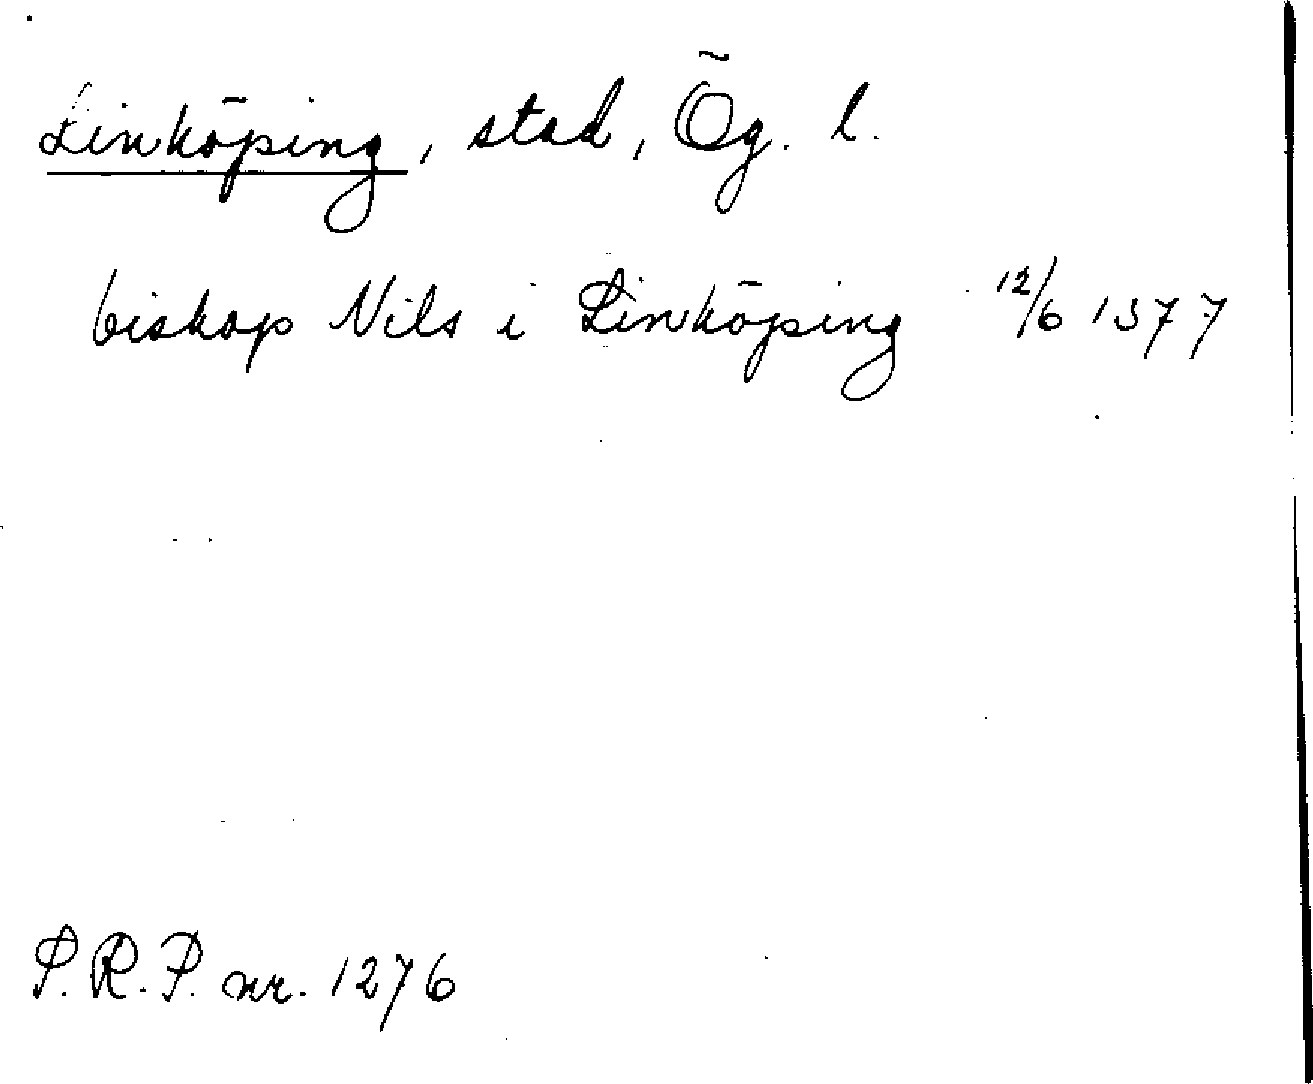 Linköping, stad, Ög. l.
biskop Nils i Linköping 12/6 1377
P.R.P. nr. 1276